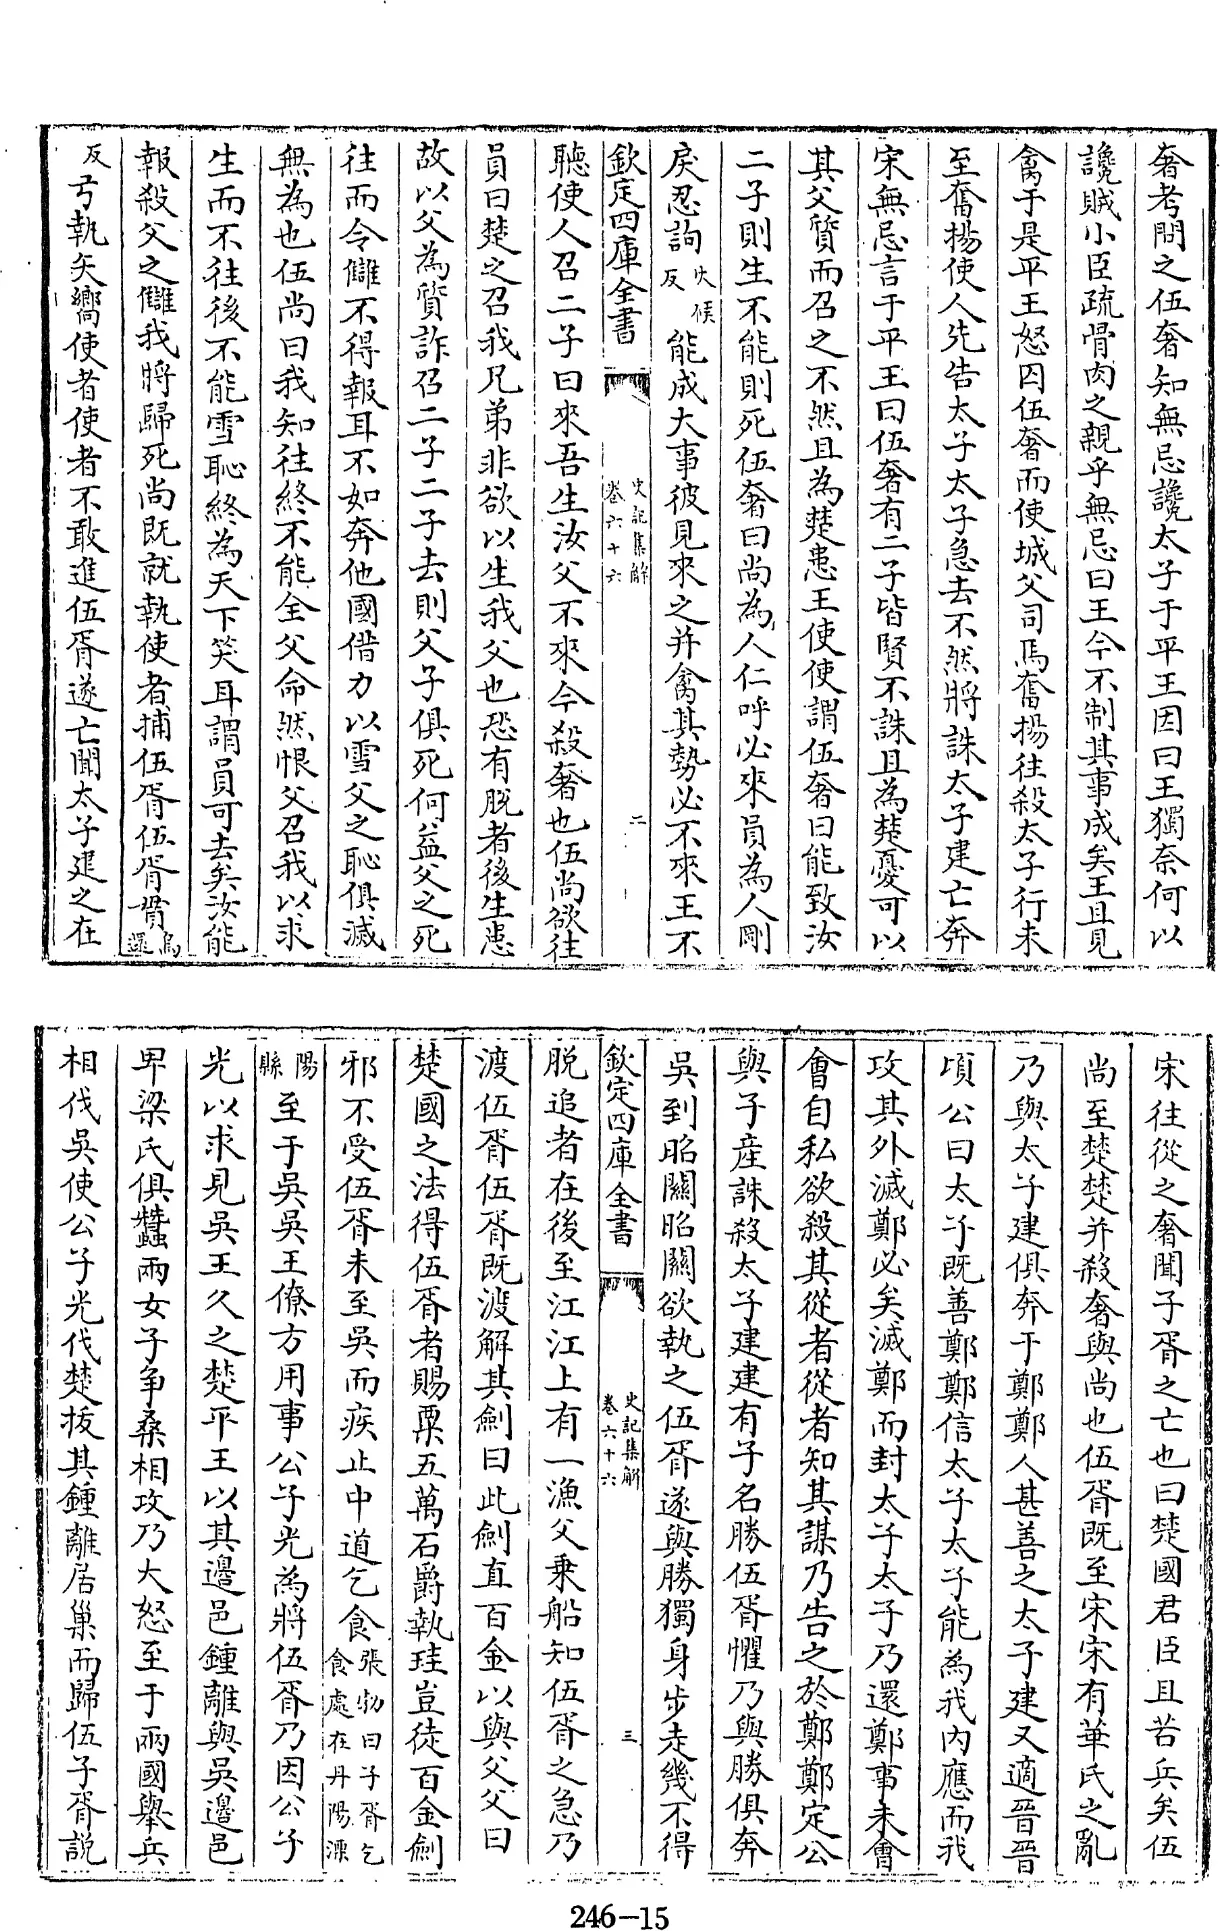 奢考問之伍奢知無忌讒太子于平王因曰王獨奈何以
讒賊小臣疏骨肉之親乎無忌曰王今不制其事成矣王且見
禽于是平王怒囚伍奢而使城父司馬奮揚往殺太子行未
至奮揚使人先告太子太子急去不然將誅太子建亡奔
宋無忌言于平王曰伍奢有二子皆賢不誅且為楚憂可以
其父質而召之不然且為楚患王使使謂伍奢曰能致汝
二子則生不能則死伍奢曰尚為人仁呼必來員為人剛
戾忍詢火候反能成大事彼見來之并禽其勢必不來王不
欽定四庫全書 史記集解卷六十六 二
聽使人召二子曰來吾生汝父不來今殺奢也伍尚欲往
員曰楚之召我兄弟非欲以生我父也恐有脫者後生患
故以父為質詐召二子二子去則父子俱死何益父之死
往而令讎不得報耳不如奔他國借力以雪父之恥俱滅
無為也伍尚曰我知往終不能全父命然恨父召我以求
生而不往後不能雪恥終為天下笑耳謂員可去矣汝能
報殺父之讎我將歸死尚既就執使者捕伍胥伍胥貫烏還
反弓執矢嚮使者使者不敢進伍胥遂亡聞太子建之在
宋往從之奢聞子胥之亡也曰楚國君臣且苦兵矣伍
尚至楚楚并殺奢與尚也伍胥既至宋宋有華氏之亂
乃與太子建俱奔于鄭鄭人甚善之太子建又適晉晉
頃公曰太子既善鄭鄭信太子太子能為我內應而我
攻其外滅鄭必矣滅鄭而封太子太子乃還鄭事未會
會自私欲殺其從者從者知其謀乃告之於鄭鄭定公
與子產誅殺太子建建有子名勝伍胥懼乃與勝俱奔
吳到昭關昭關欲執之伍胥遂與勝獨身步走幾不得
欽定四庫全書 史記集解卷六十六 三
脫追者在後至江江上有一漁父乘船知伍胥之急乃
渡伍胥伍胥既渡解其劍曰此劍直百金以與父父曰
楚國之法得伍胥者賜粟五萬石爵執珪豈徒百金劍
邪不受伍胥未至吳而疾止中道乞食張勃曰子胥乞食處在丹陽溧
陽縣至于吳吳王僚方用事公子光為將伍胥乃因公子
光以求見吳王久之楚平王以其邊邑鍾離與吳邊邑
卑梁氏俱蠶兩女子爭桑相攻乃大怒至于兩國舉兵
相伐吳使公子光伐楚拔其鍾離居巢而歸伍子胥說
246-15